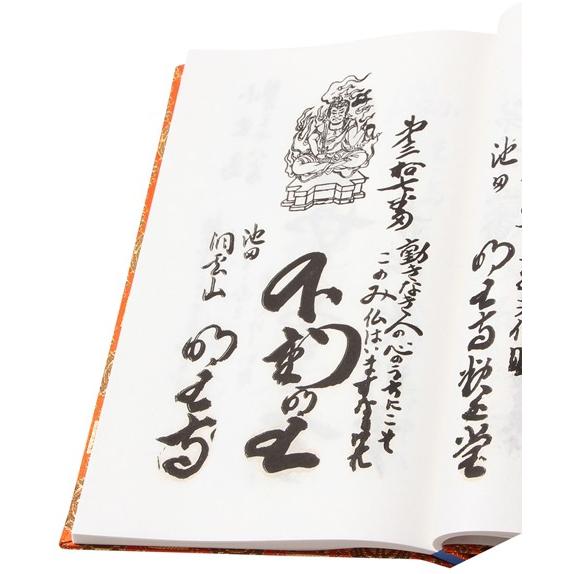 池田
明王寺
堂
第三拾七番
動きなき人の心のうちにこそ
このみ仏はいますなりけれ
不動明王
池田
洞雲山
明王寺